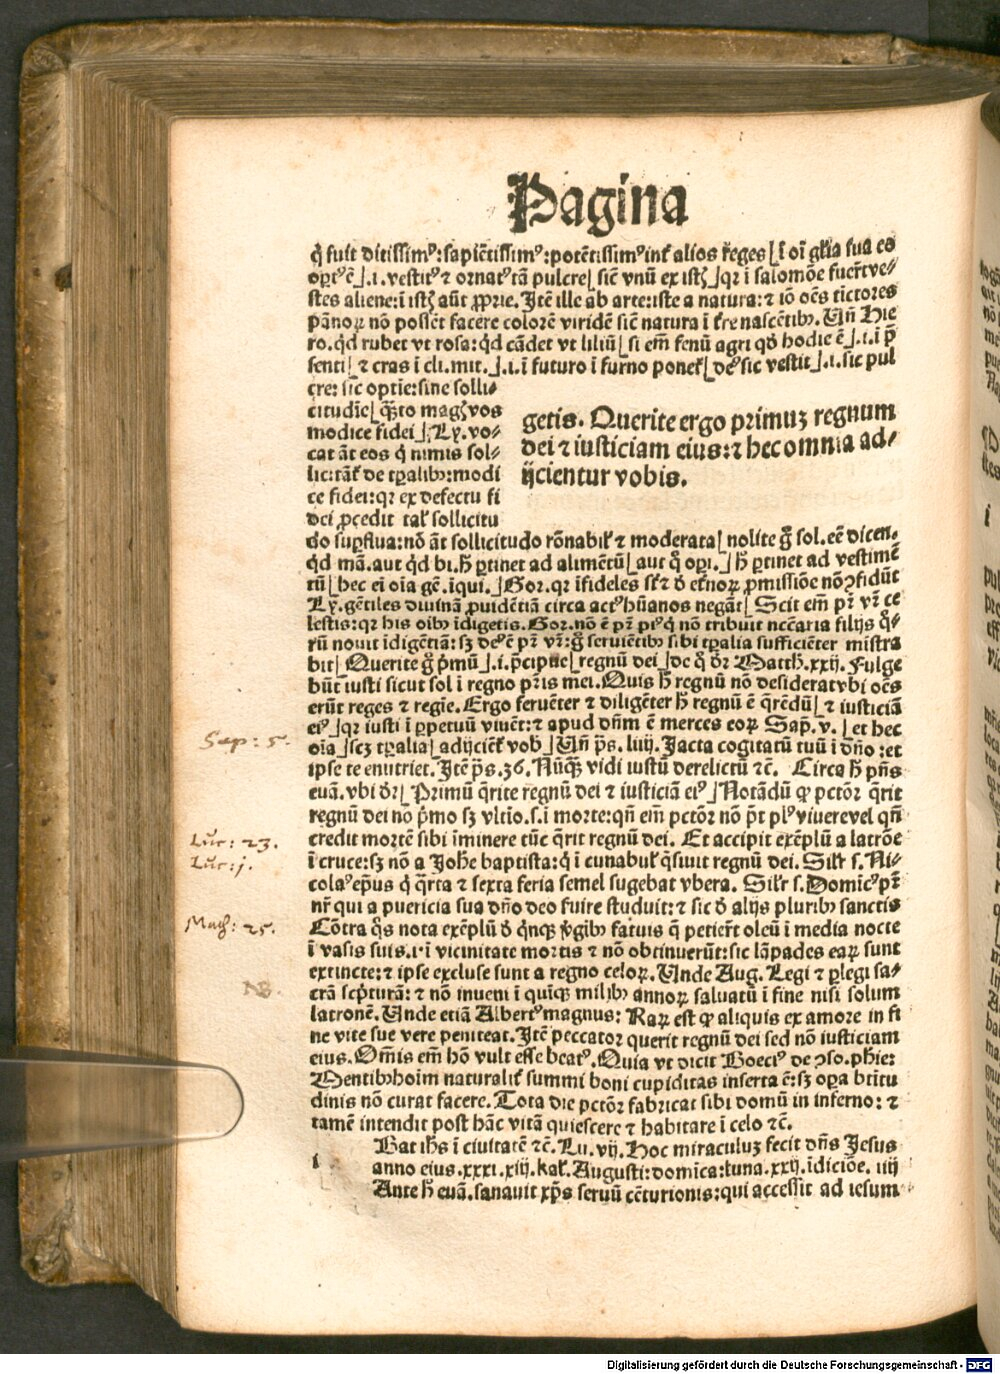 Pagina
q̇ fuit ditissimꝰ:sapiētissimꝰ:potētissimꝰ int̄ alios reges ⌊ ī oī gl̄ia sua co
optꝰ ē ⌋.i.vestitꝰ ⁊ ornatꝰ tā pulcre ⌊ sic̄ vnū ex istꝫ ⌋ qꝛ ī salomōe fuer̄t ve⸗
stes aliene:ī istꝫ aūt ꝓprie. Itē ille ab arte:iste a natura:⁊ iō oēs tictores
pānoꝝ nō possēt facere colorē viridē sic̄ natura ī t̄re nascētibꝰ. Vn̄ Hie
ro. qd̄ rubet vt rosa: qd̄ cādet vt liliū ⌊ si em̄ fenū agri qd̄ hodie ē ⌋.i.ī p̄
senti ⌊ ⁊ cras ī cli.mit. ⌋.i.ī futuro ī furno ponet̄ ⌊ deꝰ sic vestit ⌋.i.sic pul
cre: sic optie:sine solli⸗
citudīe ⌊ q̄ꝫto magꝫ vos
modice fidei ⌋ Ly. vo⸗
cat āt eos q̇ nimis sol⸗
lic:tāt̄ de tꝑalibꝰ:modi
ce fidei:qꝛ ex defectu fi
dei ꝓcedit tal̄ sollicitu
getis. Querite ergo primuꝫ regnum
dei ⁊ iusticiam eius:⁊ hec omnia ad⸗
ijcientur vobis.
do suꝑflua:nō āt sollicitudo rōnabil̄ ⁊ moderata ⌊ nolite g̊ sol.eē dicen.
qd̄ mā.aut qd̄ bi. h̄ ꝑtinet ad alimētū ⌊ aut q̇ oꝑi. ⌋ h̄ ꝑtinet ad vestimē
tū ⌊ hec ei oīa gē.īqui. ⌋ Gor.qꝛ īfideles sūt ꝺ et̄noꝝ ꝓmissiōe nō ꝯfidūt
Ly.gētiles diuinā ꝓuidētiā circa actꝰ hūanos negāt ⌊ Scit em̄ pr̄ vr̄ ce
lestis:qꝛ his oībꝰ īdigetis. Gor.nō ē pr̄ piꝰ q̇ nō tribuit nc̄caria filijs q̇⸗
rū nouit īdigētiā:sꝫ deꝰ ē pr̄ vr̄:g̊ seruiētibꝰ sibi tꝑalia sufficiēter mīstra
bit ⌊ Querite g̊ pꝰmū ⌋.i.p̄cipue ⌊ regnū dei ⌋ de q̇ dr̄ Matth.xxij. Fulge
būt iusti sicut sol ī regno pr̄is mei. Quis h̄ regnū nō desiderat vbi oēs
erūt reges ⁊ regie. Ergo feruēter ⁊ diligēter h̄ regnū ē q̄rēdū ⌊ ⁊ iusticiā
eiꝰ ⌋ qꝛ iusti ī ꝑpetuū viuēt:⁊ apud dn̄m ē merces eoꝝ Sap̄. v. ⌊ et hec
oīa ⌋ scꝫ tꝑalia ⌊ adijciēt̄ vob̄ ⌋ Vn̄ ps̄.liiij. Iacta cogitatū tuū ī dn̄o:et
ipse te enutriet. Itē ps̄.36. Nūq̄ꝫ vidi iustū derelictū ⁊c̄. Circa h̄ pn̄s
euā.vbi dr̄ ⌊ Primū q̄rite regnū dei ⁊ iusticiā eiꝰ ⌋ Notādū ꝙ pctōr q̄rit
regnū dei nō pꝰmo sꝫ vltīo.s.ī morte:qn̄ em̄ pctōr nō pōt plꝰ viuere vel qn̄
credit mortē sibi īminere tūc q̄rit regnū dei. Et accipit exēplū a latrōe
ī cruce:sꝫ nō a Johē baptista:q̇ ī cunabul̄ q̄siuit regnū dei. Silr̄ s. Ni⸗
colaꝰ ep̄us q̇ q̄rta ⁊ sexta feria semel sugebat vbera. Silr̄ s. Domicꝰ pr̄
nr̄ qui a puericia sua dn̄o deo fuire studuit:⁊ sic ꝺ alijs pluribꝰ sanctis
Cōtra q̇s nota exēplū ꝺ q̇nqꝫ v̇gibꝰ fatuis q̄ petier̄t oleū ī media nocte
ī vasis suis.i.ī vicinitate mortis ⁊ nō obtinuerūt:sic lāpades eaꝝ sunt
extincte:⁊ ipse excluse sunt a regno celoꝝ. Vnde Aug. Legi ⁊ ꝑlegi sa⸗
crā scpꝰturā:⁊ nō inueni ī quīqꝫ milibꝰ annoꝝ saluatū ī fine nisi solum
latronē. Vnde etiā Albertꝰ magnus: Raꝝ est ꝙ aliquis ex amore in fi
ne vite sue vere peniteat. Itē peccator querit regnū dei sed nō iusticiam
eius. Om̄is em̄ hō vult esse beatꝰ. Quia vt dicit Boeciꝰ de ꝯso.phie:
Mentibꝰ hoīm naturalit̄ summi boni cupiditas inserta ē:sꝫ oꝑa btītu
dinis nō curat facere. Tota die pctōr fabricat sibi domū in inferno: ⁊
tamē intendit post hāc vitā quiescere ⁊ habitare ī celo ⁊c̄.
i
Bat ihs̄ ī ciuitatē ⁊c̄. Lu. vij. Hoc miraculuꝫ fecit dn̄s Jesus
anno eius.xxxi.xiij.kal̄. Augusti:domīca:luna.xxij.īdiciōe. iiij
Ante h̄ euā.sanauit xp̄s seruū cēturionis:qui accessit ad iesum
Sap: 5.
Luc: 23.
Luc: j.
Math: 25.
NB.
Digitalisierung gefördert durch die Deutsche Forschungsgemeinschaft - DFG